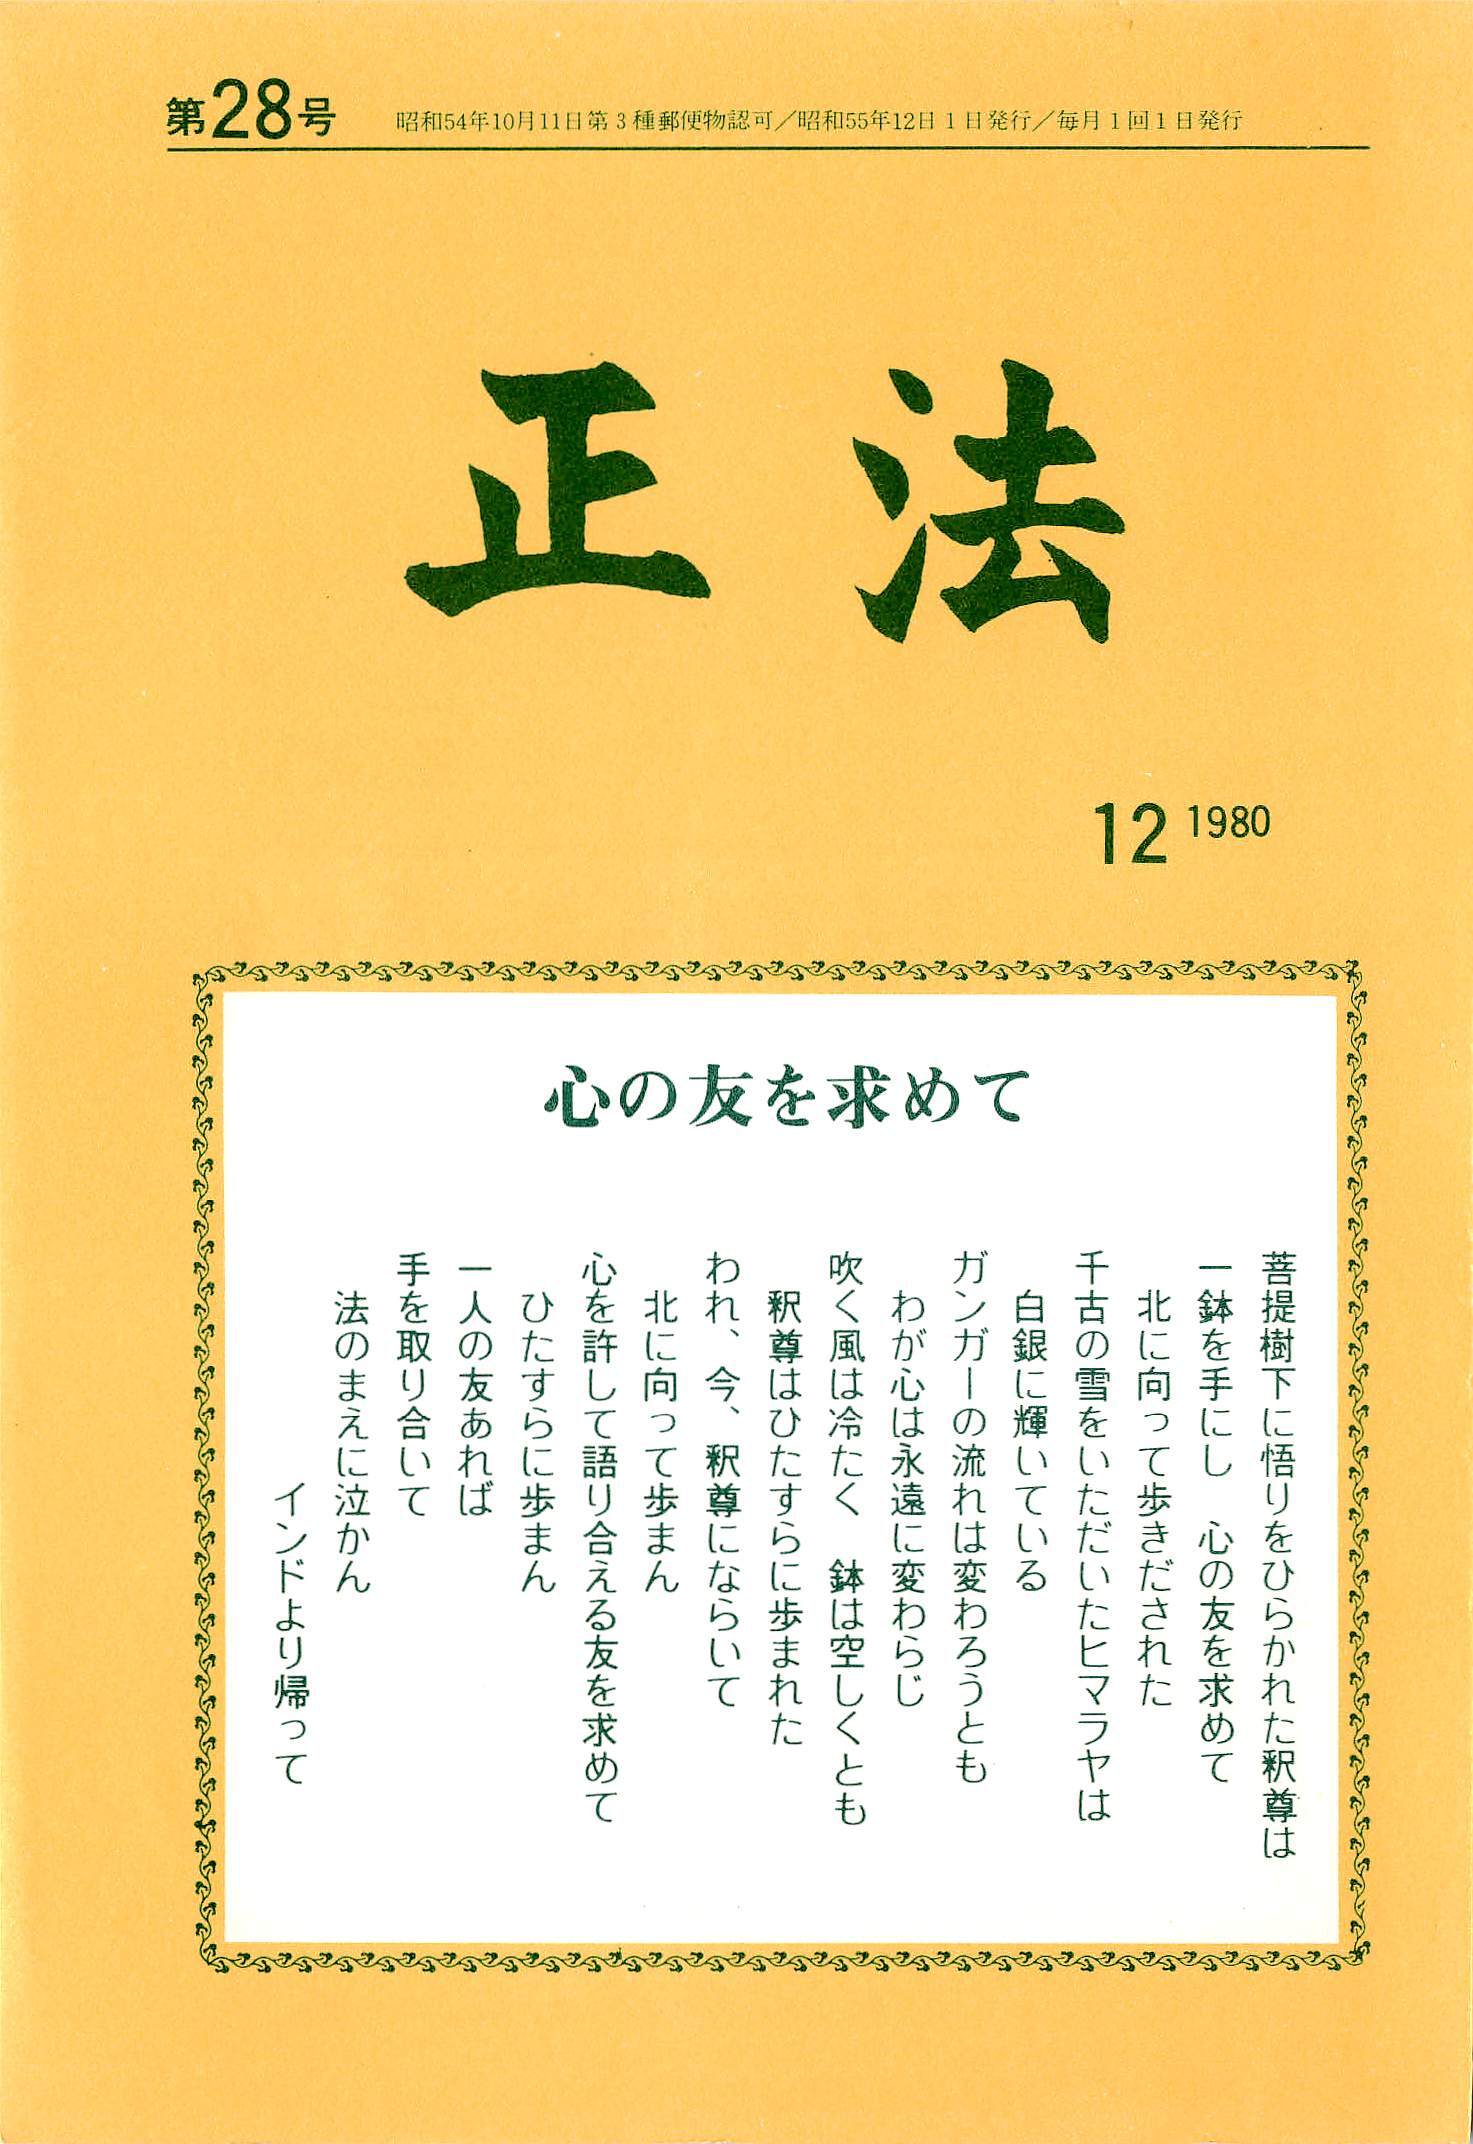 第28号
昭和54年10月11日第3種郵便物認可／昭和55年12日1日発行／毎月1回1日発行
正法
12 1980
心の友を求めて
菩提樹下に悟りをひらかれた釈尊は
一鉢を手にし　心の友を求めて
北に向って歩きだされた
千古の雪をいただいたヒマラヤは
白銀に輝いている
ガンガーの流れは変わろうとも
わが心は永遠に変わらじ
吹く風は冷たく　鉢は空しくとも
釈尊はひたすらに歩まれた
われ、今、釈尊にならいて
北に向って歩まん
心を許して語り合える友を求めて
ひたすらに歩まん
一人の友あれば
手を取り合いて
法のまえに泣かん
インドより帰って